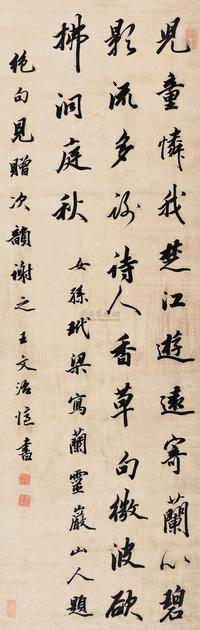 兒童憐我楚江遊遠寄蘭心碧
影流多謝詩人香草句微波欲
拂洞庭秋
女孫玳梁寫蘭靈巖山人題
絕句見贈次韻謝之 王文治書